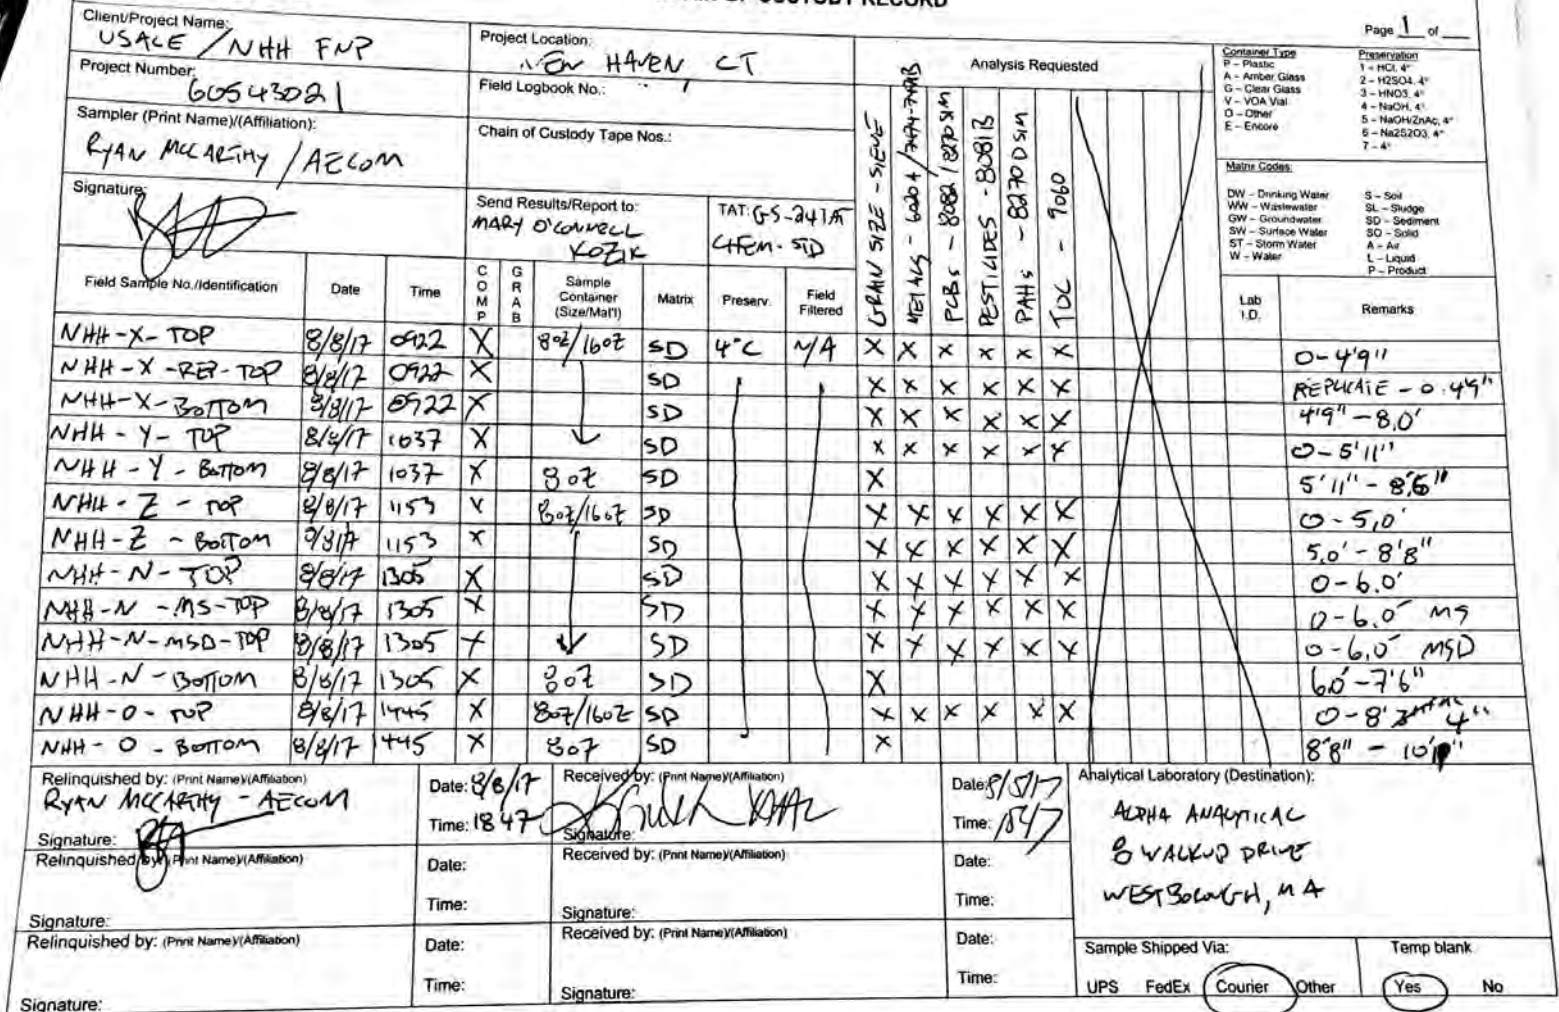 CHAIN OF CUSTODY RECORD
Page 1 of
Client/Project Name:
USACE / NHH FNP
Project Location:
NEW HAVEN, CT
Project Number:
60543021
Field Logbook No.:
Sampler (Print Name)/(Affiliation):
RYAN MCCARTHY / AECOM
Chain of Custody Tape Nos.:
Signature:
Send Results/Report to:
MARY O'CONNELL
KOZIK
TAT: GS-24TAT
CHEM-STD
Analysis Requested
GRAIN SIZE - SIEVE
METALS - 6020A /
PCBs - 8082 / 8270 SIM
PESTICIDES - 8081B
PAHs - 8270D SIM
TOC - 9060
Container Type
P – Plastic
A – Amber Glass
G – Clear Glass
V – VOA Vial
O – Other
E – Encore
Preservation
1 – HCl, 4°
2 – H2SO4, 4°
3 – HNO3, 4°
4 – NaOH, 4°
5 – NaOH/ZnAc, 4°
6 – Na2S2O3, 4°
7 – 4°
Matrix Codes:
DW – Drinking Water
WW – Wastewater
GW – Groundwater
SW – Surface Water
ST – Storm Water
W – Water
S – Soil
SL – Sludge
SD – Sediment
SO – Solid
A – Air
L – Liquid
P – Product
Field Sample No./Identification Date Time COMP GRAB Sample Container (Size/Mat'l) Matrix Preserv. Field Filtered Lab I.D. Remarks
NHH-X-TOP 8/8/17 0922 X 8oz/16oz SD 4°C N/A X X X X X X 0-4'9"
NHH-X-REP-TOP 8/8/17 0922 X SD X X X X X X REPLICATE - 0-4'9"
NHH-X-BOTTOM 8/8/17 0922 X SD X X X X X X 4'9" - 8.0'
NHH-Y-TOP 8/8/17 1037 X SD X X X X X X 0-5'11"
NHH-Y-BOTTOM 8/8/17 1037 X 8oz SD X 5'11" - 8'6"
NHH-Z-TOP 8/8/17 1153 X 8oz/16oz SD X X X X X X 0-5.0'
NHH-Z-BOTTOM 8/8/17 1153 X SD X X X X X X 5.0' - 8'8"
NHH-N-TOP 8/8/17 1305 X SD X X X X X X 0-6.0'
NHH-N-MS-TOP 8/8/17 1305 X SD X X X X X X 0-6.0' MS
NHH-N-MSD-TOP 8/8/17 1305 X SD X X X X X X 0-6.0' MSD
NHH-N-BOTTOM 8/8/17 1305 X 8oz SD X 6.0' - 7'6"
NHH-O-TOP 8/8/17 1445 X 8oz/16oz SD X X X X X X 0-8' 4"
NHH-O-BOTTOM 8/8/17 1445 X 8oz SD X 8'8" -
Relinquished by: (Print Name)/(Affiliation)
RYAN MCCARTHY - AECOM
Signature:
Date: 8/8/17
Time: 1847
Received by: (Print Name)/(Affiliation)
Signature:
Date: 8/8/17
Time: 1847
Analytical Laboratory (Destination):
ALPHA ANALYTICAL
8 WALKUP DRIVE
WESTBOROUGH, MA
Relinquished by: (Print Name)/(Affiliation)
Signature:
Date:
Time:
Received by: (Print Name)/(Affiliation)
Signature:
Date:
Time:
Relinquished by: (Print Name)/(Affiliation)
Signature:
Date:
Time:
Received by: (Print Name)/(Affiliation)
Signature:
Date:
Time:
Sample Shipped Via:
UPS FedEx Courier Other
Temp blank
Yes No